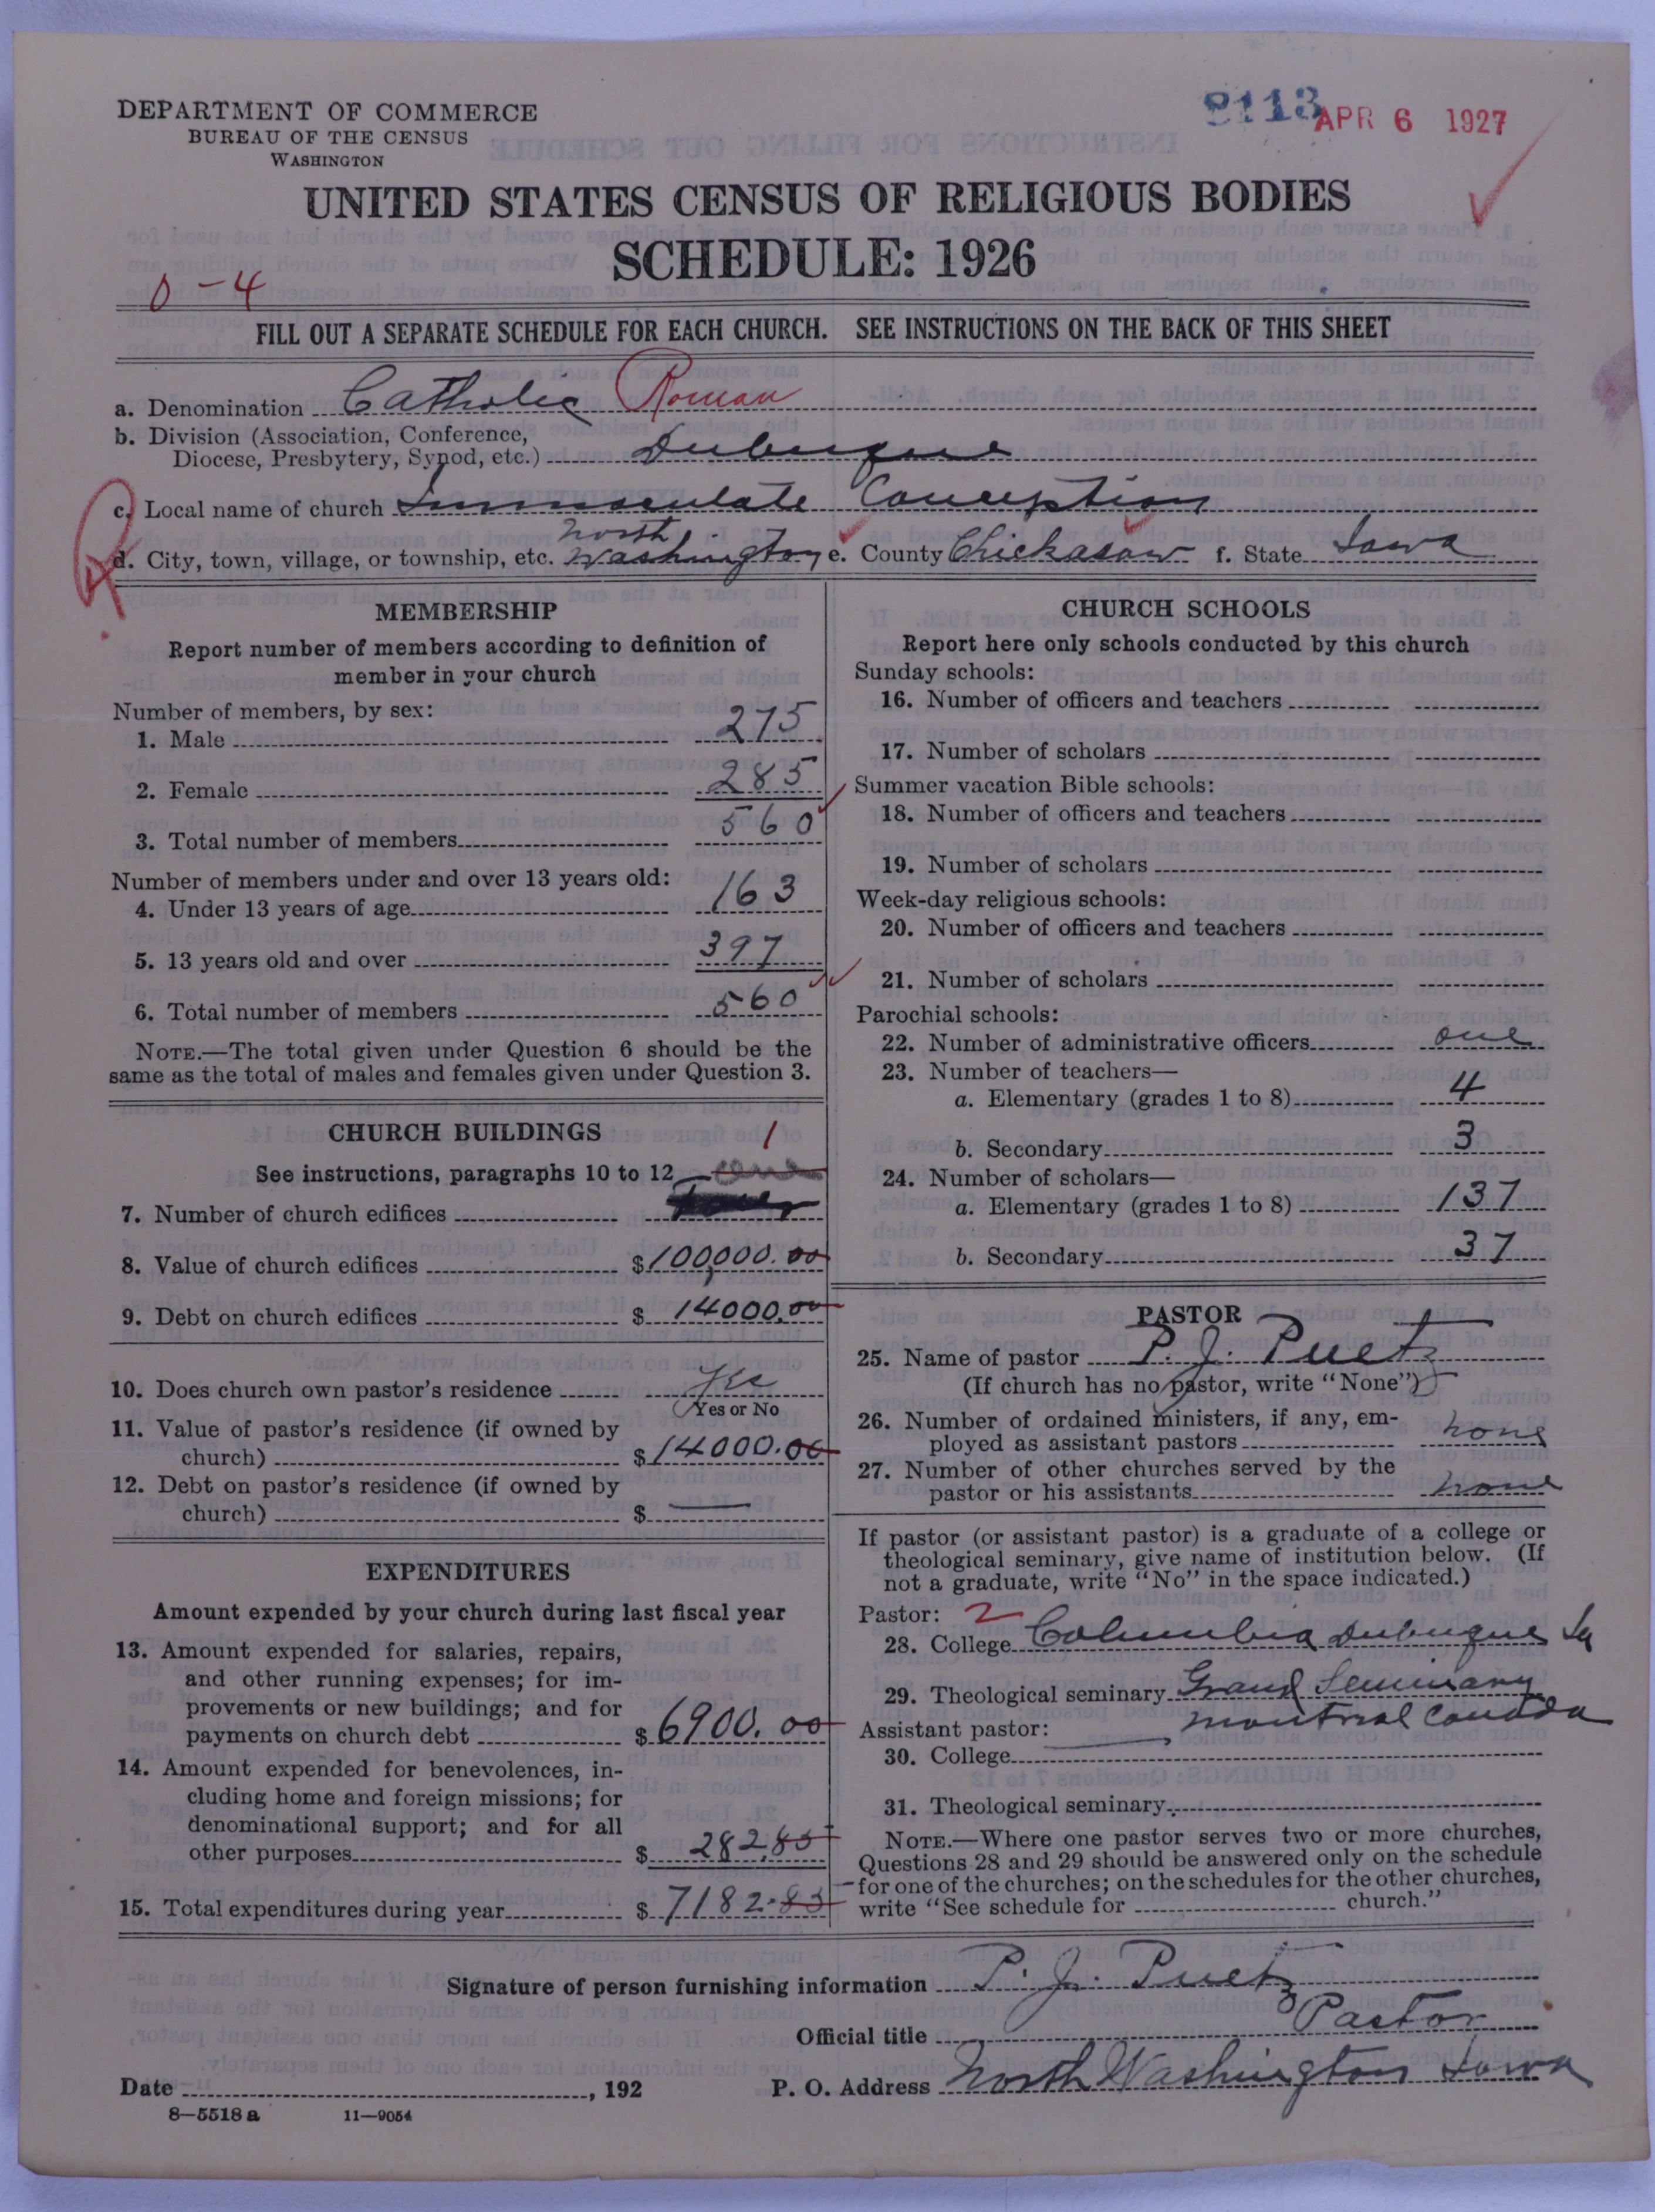 DEPARTMENT OF COMMERCE
BUREAU OF THE CENSUS
WASHINGTON
8113 APR 6 1927
UNITED STATES CENSUS OF RELIGIOUS BODIES
SCHEDULE: 1926
0-4
FILL OUT A SEPARATE SCHEDULE FOR EACH CHURCH. SEE INSTRUCTIONS ON THE BACK OF THIS SHEET
a. Denomination Catholic Roman
b. Division (Association, Conference,
Diocese, Presbytery, Synod, etc.) Dubuque
c. Local name of church Immaculate Conception
d. City, town, village, or township, etc. North Washington e. County Chickasaw f. State Iowa
MEMBERSHIP
Report number of members according to definition of
member in your church
Number of members, by sex:
1. Male 275
2. Female 285
3. Total number of members 560
Number of members under and over 13 years old:
4. Under 13 years of age 163
5. 13 years old and over 397
6. Total number of members 560
NOTE.—The total given under Question 6 should be the
same as the total of males and females given under Question 3.
CHURCH BUILDINGS
See instructions, paragraphs 10 to 12
7. Number of church edifices 1
8. Value of church edifices $100,000.00
9. Debt on church edifices $14000.00
10. Does church own pastor's residence Yes
Yes or No
11. Value of pastor's residence (if owned by
church) $14000.00
12. Debt on pastor's residence (if owned by
church) $ —
EXPENDITURES
Amount expended by your church during last fiscal year
13. Amount expended for salaries, repairs,
and other running expenses; for im-
provements or new buildings; and for
payments on church debt $6900.00
14. Amount expended for benevolences, in-
cluding home and foreign missions; for
denominational support; and for all
other purposes $282.85
15. Total expenditures during year $7182.85
CHURCH SCHOOLS
Report here only schools conducted by this church
Sunday schools:
16. Number of officers and teachers
17. Number of scholars
Summer vacation Bible schools:
18. Number of officers and teachers
19. Number of scholars
Week-day religious schools:
20. Number of officers and teachers
21. Number of scholars
Parochial schools:
22. Number of administrative officers one
23. Number of teachers—
a. Elementary (grades 1 to 8) 4
b. Secondary 3
24. Number of scholars—
a. Elementary (grades 1 to 8) 137
b. Secondary 37
PASTOR
25. Name of pastor P. J. Puetz
(If church has no pastor, write "None")
26. Number of ordained ministers, if any, em-
ployed as assistant pastors none
27. Number of other churches served by the
pastor or his assistants none
If pastor (or assistant pastor) is a graduate of a college or
theological seminary, give name of institution below. (If
not a graduate, write "No" in the space indicated.)
Pastor: 2
28. College Columbia Dubuque Ia
29. Theological seminary Grand Seminary
Montreal Canada
Assistant pastor: —
30. College
31. Theological seminary
NOTE.—Where one pastor serves two or more churches,
Questions 28 and 29 should be answered only on the schedule
for one of the churches; on the schedules for the other churches,
write "See schedule for church."
Signature of person furnishing information P. J. Puetz
Official title Pastor
Date , 192
P. O. Address North Washington Iowa
8—5518 a 11—9054